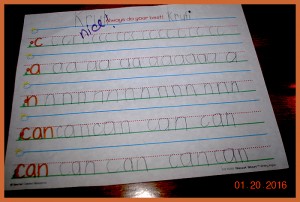 nice! Always do your best!
c c c c c c c c c c c c c
a a a a a a a a a
n n n n n n n n n n n
can can can can can
can can can can can
01 20 2016